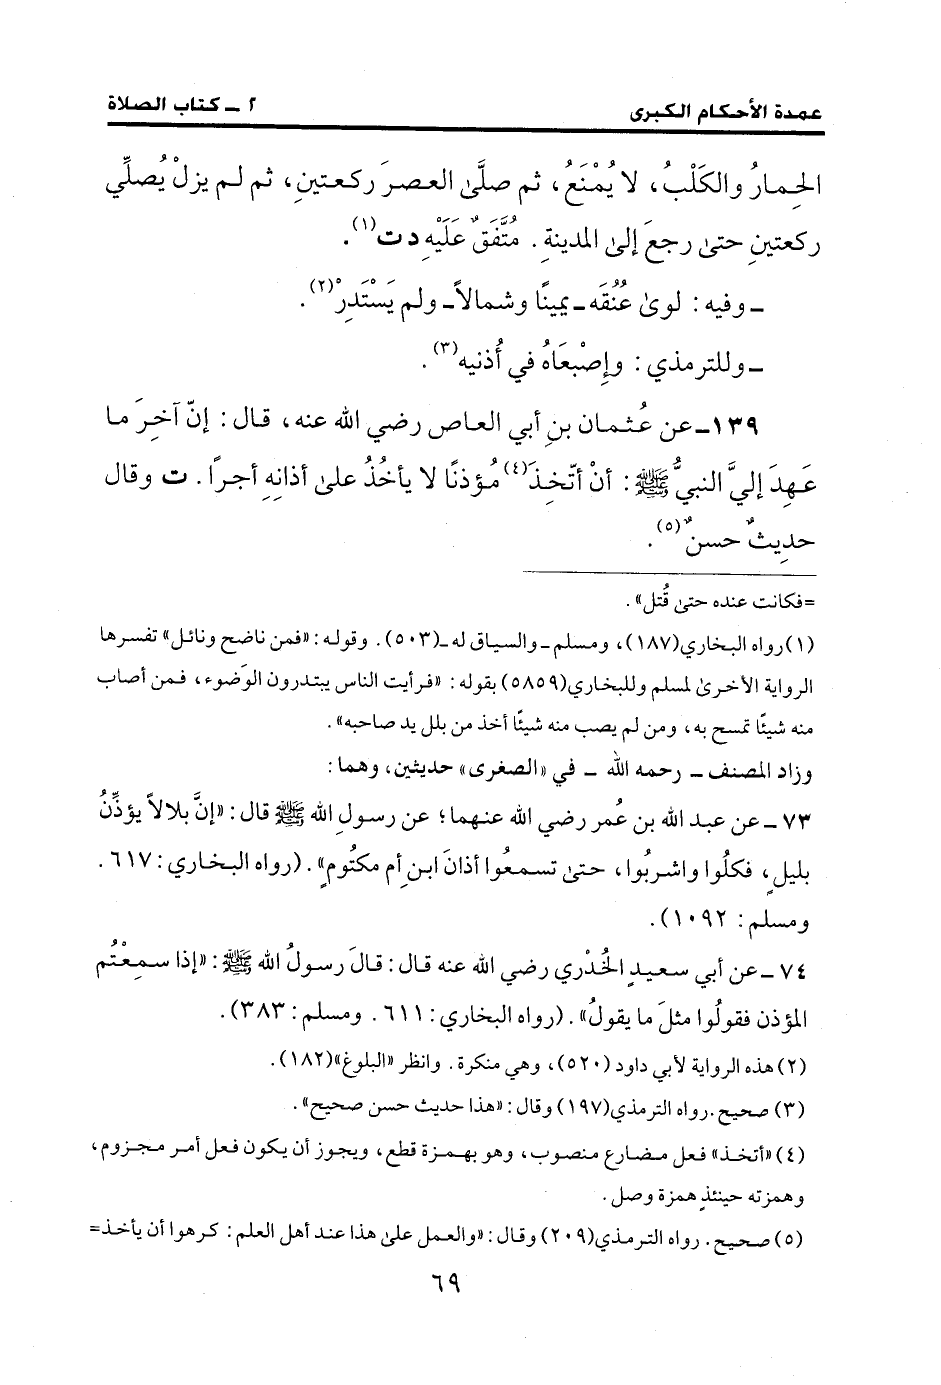 عمدة الأحكام الكبرى
٢ ـ كتاب الصلاة
الحِمارُ والكَلْبُ، لا يُمْنَعُ، ثم صلَّى العصرَ ركعتينِ، ثم لم يزلْ يُصلِّي
ركعتينِ حتى رجعَ إلى المدينةِ. مُتَّفَقٌ عَلَيْهِ د ت(١).
ـ وفيه: لوىٰ عُنُقَه ـ يمينًا وشمالاً ـ ولم يَسْتَدِرْ(٢).
ـ وللترمذي: وإِصْبَعَاهُ في أُذنيه(٣).
١٣٩ـ عن عُثمان بنِ أبي العاص رضي الله عنه، قال: إنّ آخِرَ ما
عَهِدَ إليَّ النبيُّ ﷺ: أنْ أتّخِذَ(٤) مُؤذنًا لا يأخُذُ علىٰ أذانِهِ أجرًا. ت وقال
حديثٌ حسنٌ(٥).
=فكانت عنده حتىٰ قُتل».
(١) رواه البخاري(١٨٧)، ومسلم ـ والسياق له ـ(٥٠٣). وقوله: «فمن ناضح ونائل» تفسرها
الرواية الأخرىٰ لمسلم وللبخاري(٥٨٥٩) بقوله: «فرأيت الناس يبتدرون الوَضوء، فمن أصاب
منه شيئًا تمسح به، ومن لم يصب منه شيئًا أخذ من بلل يد صاحبه».
وزاد المصنف ـ رحمه الله ـ في «الصغرى» حديثين، وهما:
٧٣ ـ عن عبد الله بن عُمر رضي الله عنهما؛ عن رسولِ الله ﷺ قال: «إنَّ بلالاً يؤذِّنُ
بليلٍ، فكلُوا واشربُوا، حتىٰ تسمعُوا أذانَ ابنِ أم مكتُومٍ». (رواه البخاري: ٦١٧.
ومسلم: ١٠٩٢).
٧٤ ـ عن أبي سعيدٍ الخُدْري رضي الله عنه قال: قالَ رسولُ الله ﷺ: «إذا سمِعْتُم
المؤذن فقولُوا مثلَ ما يقولُ». (رواه البخاري: ٦١١. ومسلم: ٣٨٣).
(٢) هذه الرواية لأبي داود (٥٢٠)، وهي منكرة. وانظر «البلوغ»(١٨٢).
(٣) صحيح. رواه الترمذي(١٩٧) وقال: «هذا حديث حسن صحيح».
(٤) «أتخذ» فعل مضارع منصوب، وهو بهمزة قطع، ويجوز أن يكون فعل أمر مجزوم،
وهمزته حينئذٍ همزة وصل.
(٥) صحيح. رواه الترمذي(٢٠٩) وقال: «والعمل علىٰ هذا عند أهل العلم: كرهوا أن يأخذ=
٦٩